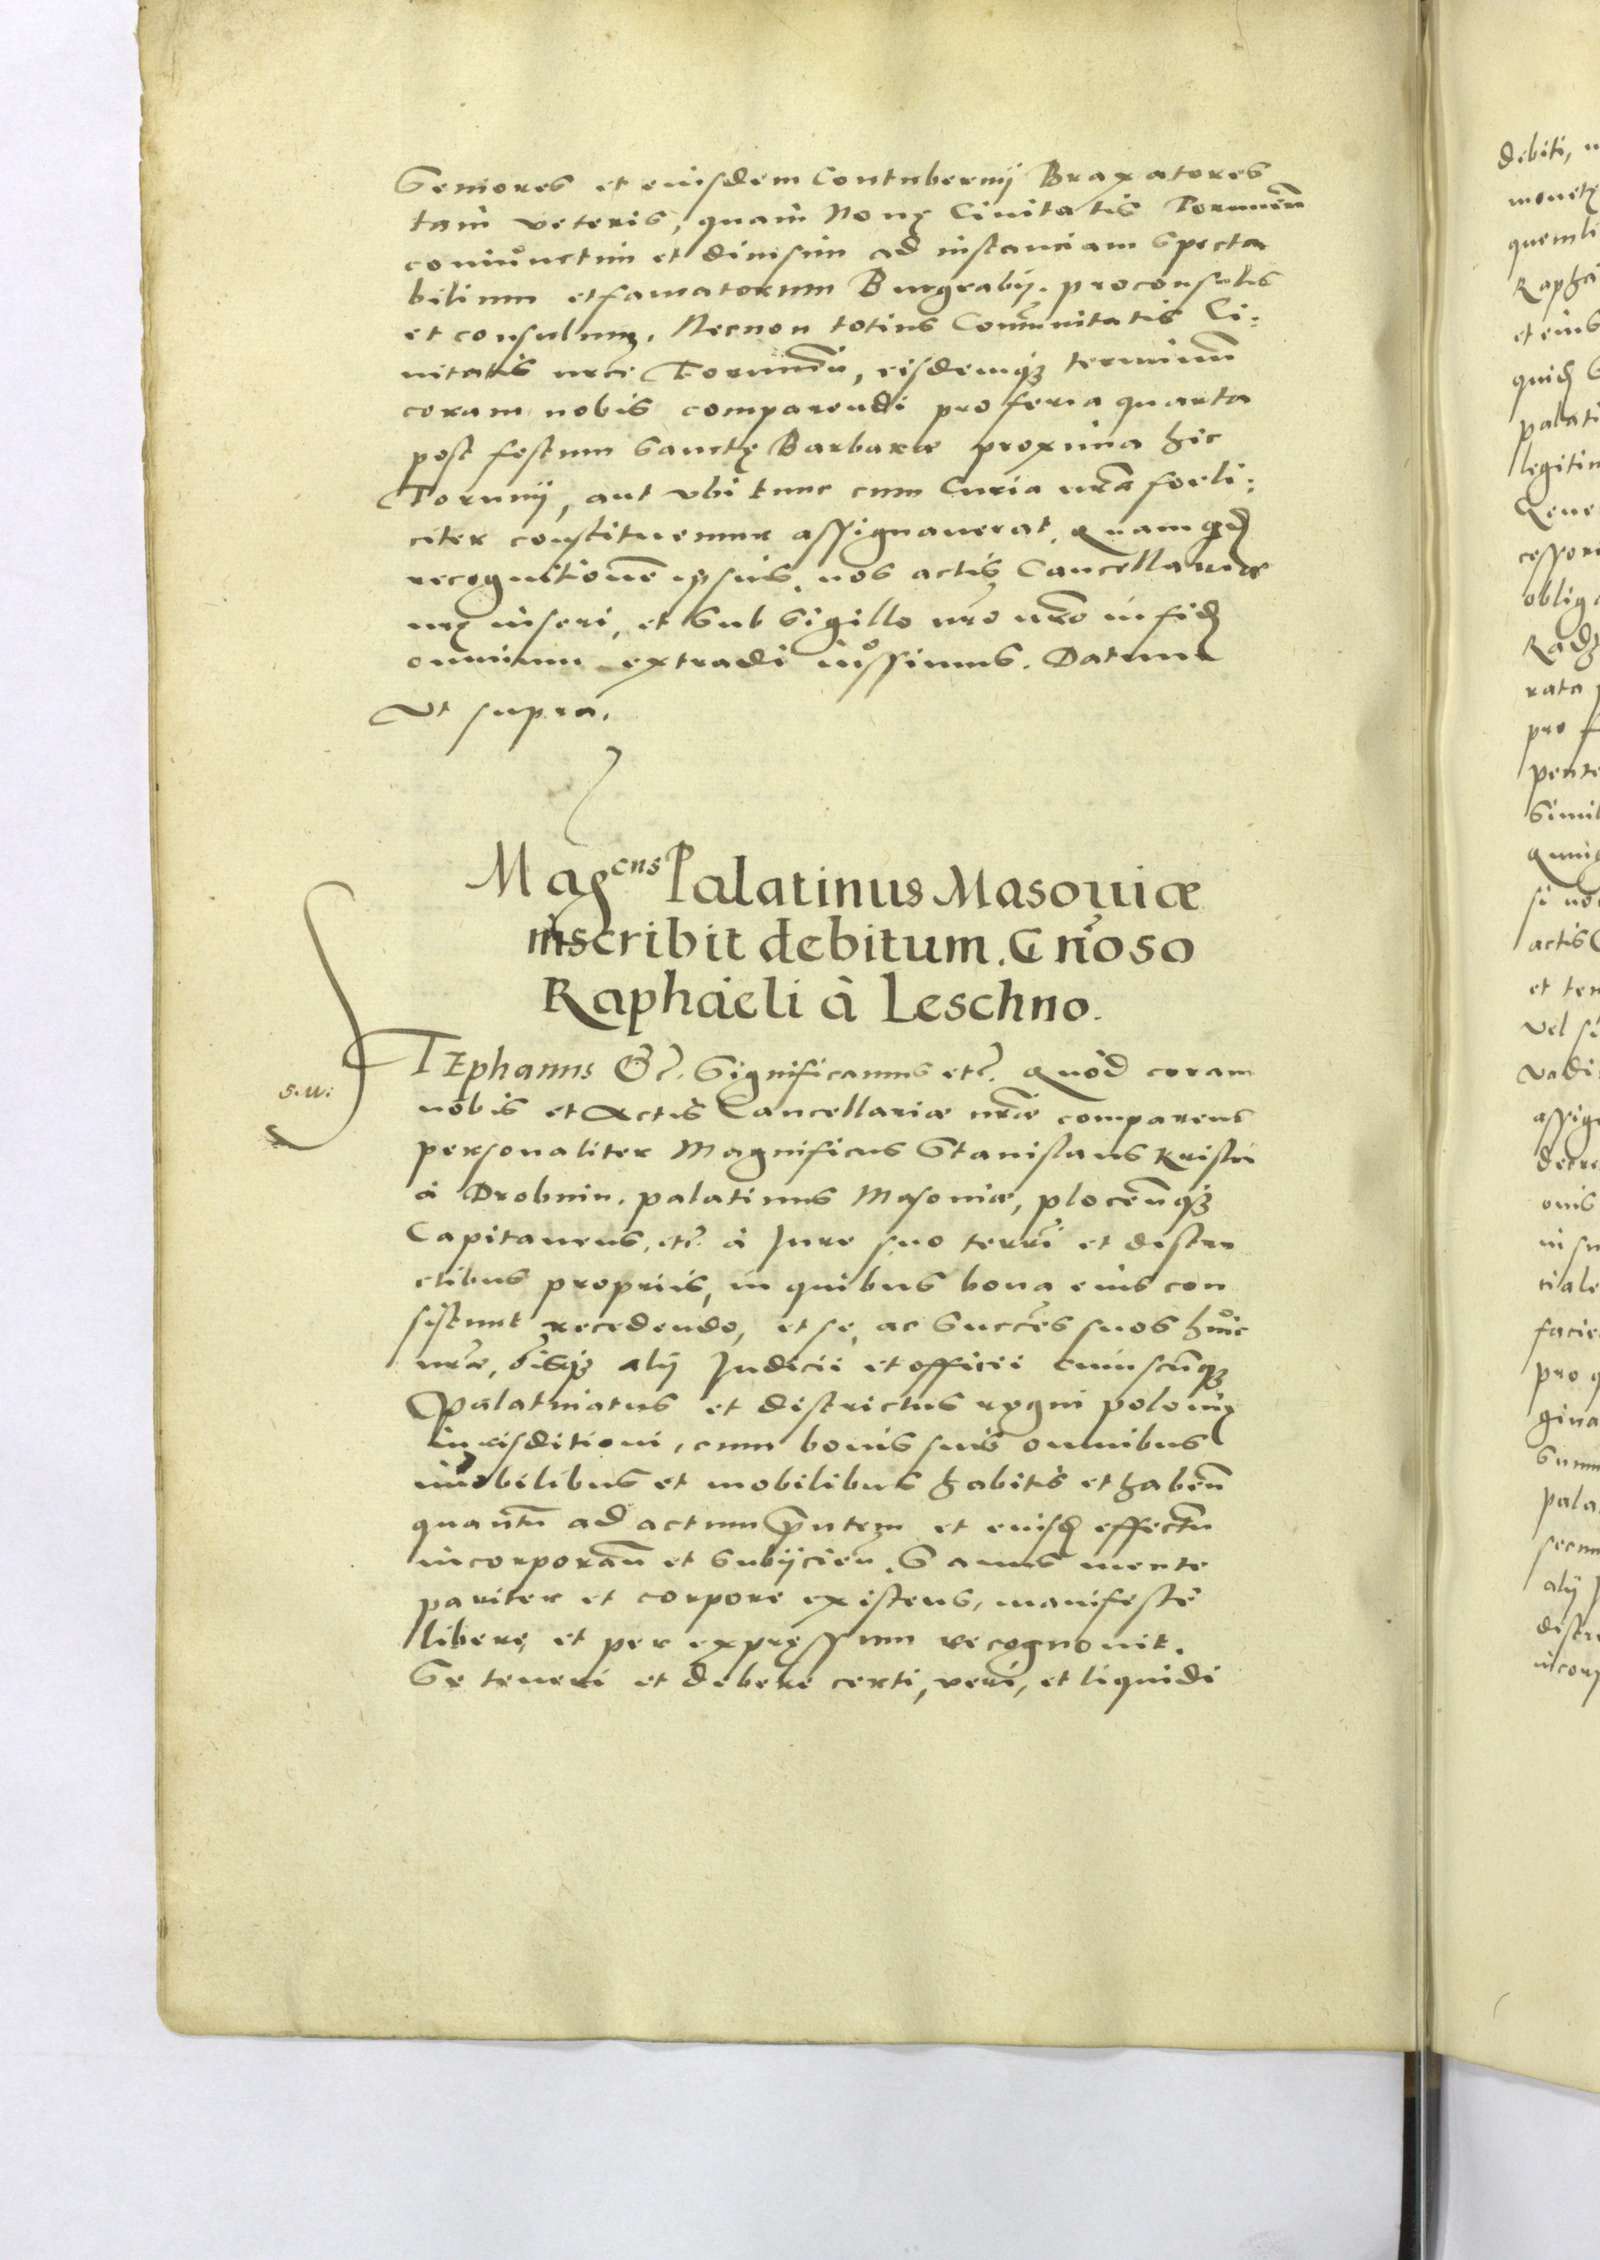 Seniores et eiusdem Contubernij Braxatores
tam veteris, quam Nouę Ciuitatis Torunen̄
coniunctim et diuisim ad instanciam specta
bilium et famatorum Burgrabij. proconsulis
et consulum, Necnon totius Com̄unitatis Ci:
uitatis nr̄e Torunen̄, eisdemq3 terminum
coram nobis comparendi pro feria quarta
post festum Sanctę Barbaræ proxima hic
Torunij, aut vbi tunc cum Curia nr̄a foeli:
citer constituemur assignauerat. Quam qd̄
recognitionē ipsius, nos actis Cancellariæ
nr̄ę inseri, et sub Sigillo nr̄o in fid
omnium extradi iussimus. Datum
Vt supra.
Mag^cus Palatinus Masouiæ
inscribit debitum. Gn̄oso
Raphaeli à Leschno.
STEphanus &c. Significamus etc. Quòd coram
nobis et Actis Cancellariæ nr̄æ comparens
personaliter Magnificus Stanislaus Kriski
à Drobnin. palatinus Masouiæ, plocen̄q3
Capitaneus, etc. à Jure suo terrī et distri
ctibus propriis, in quibus bona eius con
sistunt recedendo, et se, ac Succēs suos huic
nr̄æ, alij Judicii et officii cuiuscūq3
Palatinatus et districtus regni polonię
iurisditioni, cum bonis suis omnibus
imobilibus et mobilibus habitis et haben̄
quantū ad actum pn̄tem et eiusd effectū
incorporan̄ et subijcien̄. Sanus mente
pariter et corpore existens, manifestè
liberę et per expręssum recognouit.
Se teneri et debere certi, veri, et liquidi
s.w:
debiti,
monetę
quemli
Rapha
et eius
quid
palati
legitim
cessori
oblig
Radz
rata
pro
pente
Simil
si no
actis
et ten
vel si
vadi
assig
decre
onis
in su
tiale
facie
pro q
gina
Summ
pala
secun
alij
distri
incorp